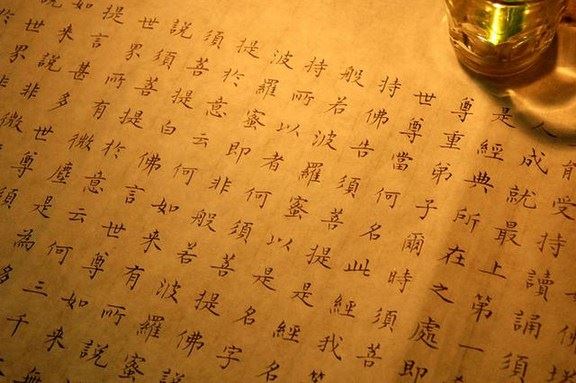 如佛塔
能受持讀誦須
人成就最上第一
是經典所在之處即
尊重弟子爾時須菩
世尊當何名此經我等
持佛告須菩提是經名
般若波羅蜜以是名字
持所以者何須菩提佛說
波羅蜜即非般若波羅蜜
提於意云何如來有所說
須菩提白佛言世尊如來無
說須菩提於意云何三千
世界所有微塵是為多
提言甚多世尊須
如來說非微
世界非